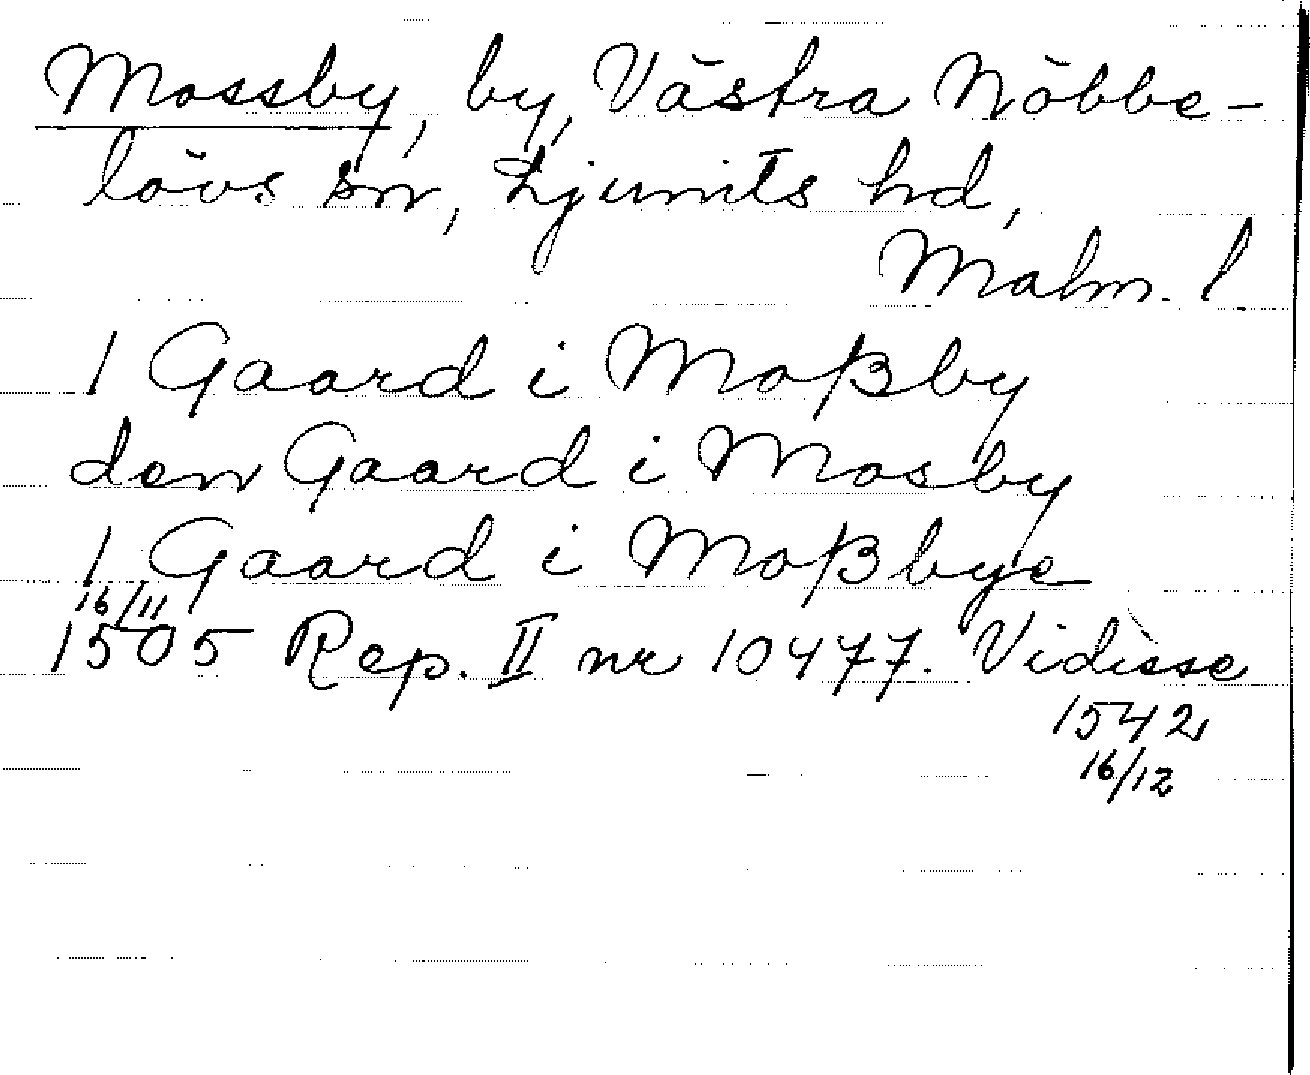 Mossby, by, Västra Nöbbe-
lövs sn, Ljunits hd,
Malm. l
1 Gaard i Moßby
den Gaard i Mosby
1 Gaard i Moßbye
16/11
1505 Rep. II nr 10477. Vidisse
1542
16/12